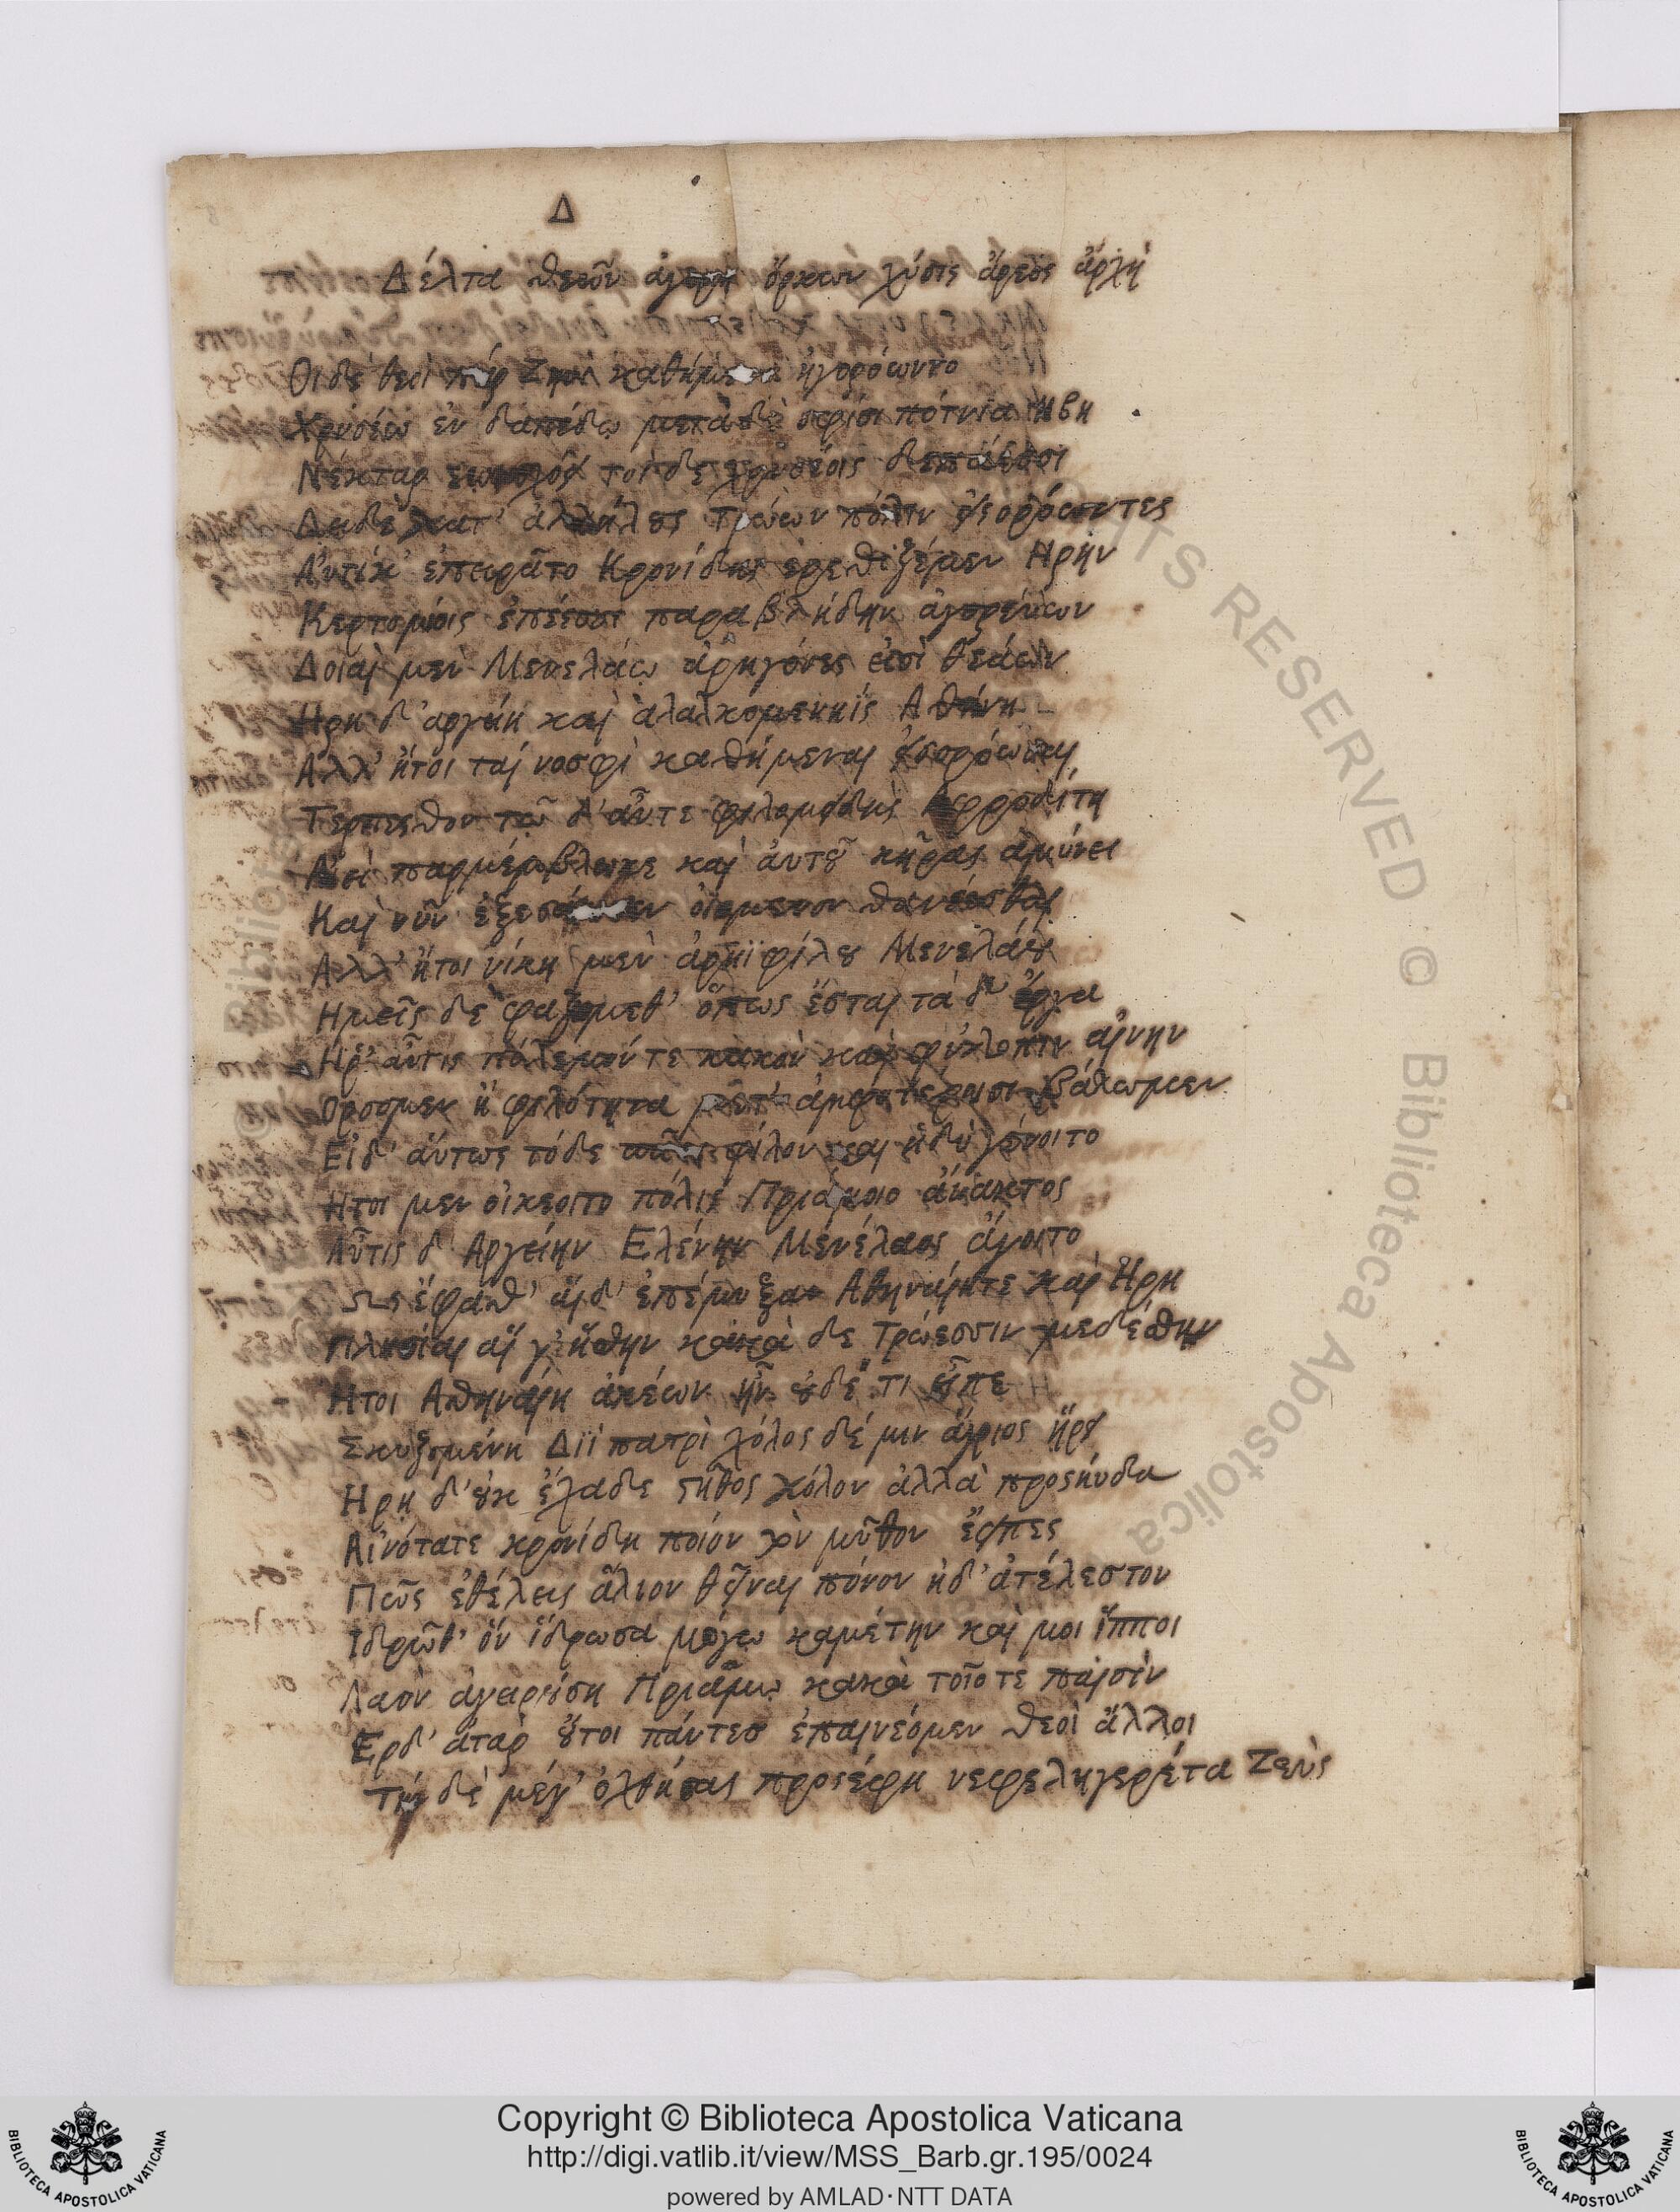 Δ
Δέλτα θεῶν ἀγορὴ ὅρκων χύσις ἄρεος ἀρχὴ
Οι δὲ θεοὶ πὰρ Ζηνὶ καθήμενοι ἠγορόωντο
Χρυσέω ἐν δαπέδῳ μετὰ δὲ σφίσι πότνια Ήβη
Νέκταρ τοὶ δε χρυσέοις δεπάεσσι
Δειδέχατ' ἀλλήλους Τρώων πόλιν εἰσορόωντες
Αὐτίκ' ἐπειρᾶτο Κρονίδης ἐρεθιζέμεν Ηρην
Κερτομίοις ἐπέεσσι παραβλήδην ἀγορεύων
Δοιαὶ μεν Μενελάῳ ἀρηγόνες εἰσὶ θεάων
Ηρη δ' αργείη καὶ ἀλαλκομενηῒς Αθήνη
Αλλ' ἤτοι ταὶ νοσφὶ καθήμεναι εἰσορόωσαι
Τέρπεσθον τῶ δ' αὖτε φιλομειδὴς Αφροδίτη
Αἰεὶ παρμέμβλωκε καὶ ἀυτοῦ κῆρας ἀμύνει
Καὶ νῦν ἐξεσάωσεν οἰομενον θανέεσθαι
Αλλ' ἤτοι νίκη μεν ἀρηϊφίλου Μενελάου
Ημεῖς δὲ φραζωμεθ' ὅπως ἔσται τὰ δε ἔργα
Ηρ' αὖτις πόλεμόν τε κακὸν καὶ φύλοπιν αἰνην
Ορσομεν ἢ φιλότητα μετ' ἀμφοτέροισι βάλωμεν
Εἰ δ' αὔτως τόδε πᾶσι φίλον καὶ ἡδὺ γένοιτο
Ητοι μεν οἰκεοιτο πόλις Πριάμοιο ἄνακτος
Αὖτις δ' Αργείην Ελένην Μενέλαος ἄγοιτο
Ως ἔφαθ' αἱ δ' ἐπέμυξαν Αθηναίη τε καὶ Ηρη
Πλησίαι αἵ γ' ἤσθην κακὰ δε Τρώεσσιν μεδέσθην
Ητοι Αθηναίη ἀκέων ἦν οὐδέ τι εἶπε
Σκυζομένη Διῒ πατρὶ χόλος δέ μιν ἄγριος ᾕρει
Ηρη δ' οὐκ ἔχαδε στῆθος χόλον ἀλλὰ προςηύδα
Αἰνότατε κρονίδη ποίον τὸν μῦθον ἔειπες
Πῶς ἐθέλεις ἅλιον θεῖναι πόνον ἠδ' ἀτέλεστον
Ιδρῶθ' ὅν ἵδρωσα μόγῳ καμέτην καὶ μοι ἵπποι
Λαὸν ἀγειρούση Πριάμῳ κακὰ τοῖο τε παισὶν
Ερδ' ἀταρ οὔτοι πάντεσ ἐπαινέομεν θεοὶ ἄλλοι
Τὴν δὲ μέγ' ὀχθήσας προςέφη νεφεληγερέτα Ζεὺς
Copyright © Biblioteca Apostolica Vaticana
http://digi.vatlib.it/view/MSS_Barb.gr.195/0024
powered by AMLAD·NTT DATA